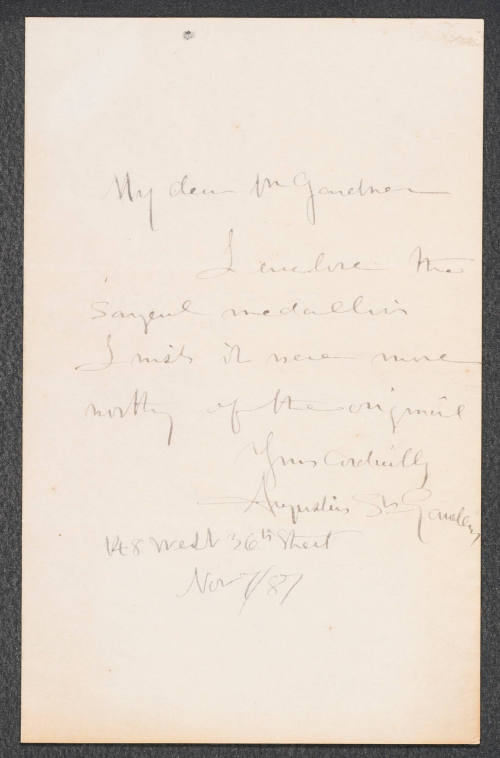 My dear Mr Gardner
I enclose the
Sargent medallion
I wish it were more
worthy of the original
Yrs Cordially
Augustus St Gaudens
148 West 36th Street
Nov 7/87